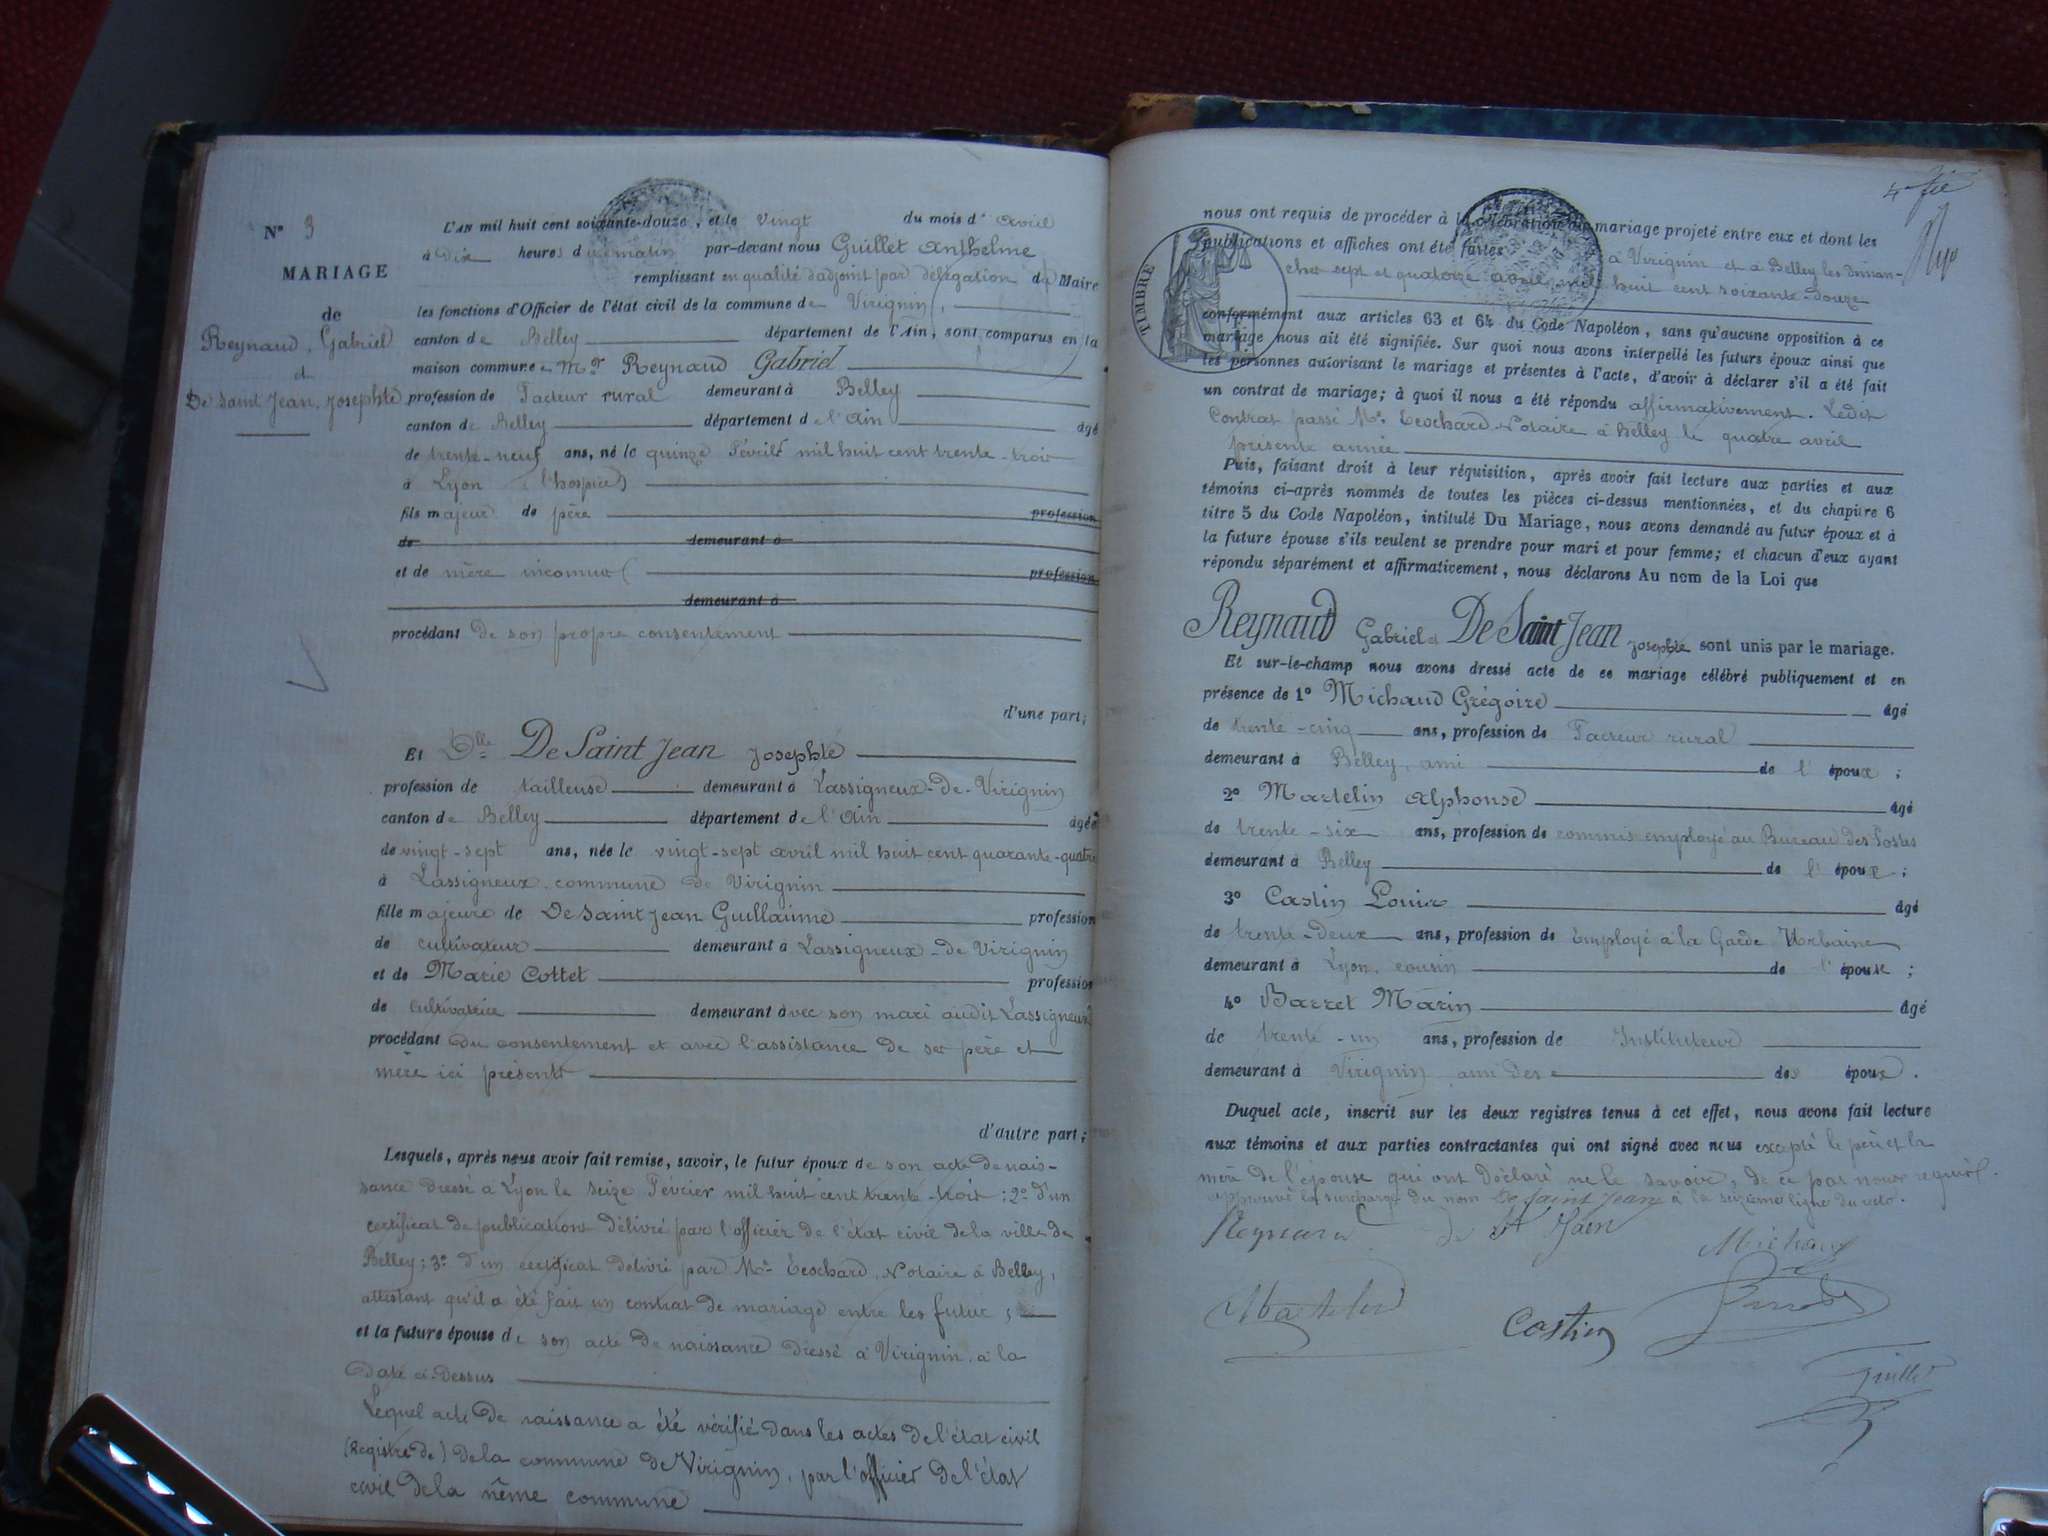 N° 3
MARIAGE
de
Reynaud, Gabriel
et
De Saint Jean, Josephte
L'AN mil huit cent soixante-douze, et le vingt du mois d'avril
à dix heures du matin par-devant nous Guillet Anthelme
remplissant en qualité d'adjoint par délégation du Maire
les fonctions d'Officier de l'état civil de la commune de Virignin,
canton de Belley département de l'Ain, sont comparus en la
maison commune Mr Reynaud Gabriel
profession de Facteur rural demeurant à Belley
canton de Belley département de l'Ain âgé
de trente-neuf ans, né le quinze Février mil huit cent trente-trois
à Lyon à l'hospice
fils majeur de père profession
de demeurant à
et de mère inconnus profession
demeurant à
procédant de son propre consentement
d'une part;
Et Dlle De Saint Jean Josephte
profession de tailleuse demeurant à Lassigneux-de-Virignin
canton de Belley département de l'Ain âgée
de vingt-sept ans, née le vingt-sept avril mil huit cent quarante-quatre
à Lassigneux commune de Virignin
fille majeure de De Saint Jean Guillaume profession
de cultivateur demeurant à Lassigneux-de-Virignin
et de Marie Cottet profession
de cultivatrice demeurant avec son mari audit Lassigneux
procédant du consentement et avec l'assistance de ses père et
mère ici présents
d'autre part;
Lesquels, après nous avoir fait remise, savoir, le futur époux de son acte de nais-
sance dressé à Lyon le seize Février mil huit cent trente-trois; 2° d'un
certificat de publications délivré par l'officier de l'état civil de la ville de
Belley; 3° d'un certificat délivré par Me Teochard, Notaire à Belley,
attestant qu'il a été fait un contrat de mariage entre les futurs;
et la future épouse de son acte de naissance dressé à Virignin à la
date ci-dessus
Lequel acte de naissance a été vérifié dans les actes de l'état civil
(Registre de) de la commune de Virignin, par l'officier de l'état
civil de la même commune
4e fle
nous ont requis de procéder à la célébration du mariage projeté entre eux et dont les
publications et affiches ont été faites à Virignin et à Belley les diman-
ches sept et quatorze avril mil huit cent soixante-douze
TIMBRE
conformément aux articles 63 et 64 du Code Napoléon, sans qu'aucune opposition à ce
mariage nous ait été signifiée. Sur quoi nous avons interpellé les futurs époux ainsi que
les personnes autorisant le mariage et présentes à l'acte, d'avoir à déclarer s'il a été fait
un contrat de mariage; à quoi il nous a été répondu affirmativement. Ledit
Contrat passé Me Teochard Notaire à Belley le quatre avril
présente année
Puis, faisant droit à leur réquisition, après avoir fait lecture aux parties et aux
témoins ci-après nommés de toutes les pièces ci-dessus mentionnées, et du chapitre 6
titre 5 du Code Napoléon, intitulé Du Mariage, nous avons demandé au futur époux et à
la future épouse s'ils veulent se prendre pour mari et pour femme; et chacun d'eux ayant
répondu séparément et affirmativement, nous déclarons Au nom de la Loi que
Reynaud Gabriel et De Saint Jean Josephte sont unis par le mariage.
Et sur-le-champ nous avons dressé acte de ce mariage célébré publiquement et en
présence de 1° Michaud Grégoire âgé
de trente-cinq ans, profession de Facteur rural
demeurant à Belley, ami de l'époux;
2° Martelin Alphonse âgé
de trente-six ans, profession de commis employé au Bureau des Postes
demeurant à Belley de l'époux;
3° Castin Louis âgé
de trente-deux ans, profession de Employé à la Garde Urbaine
demeurant à Lyon, cousin de l'époux;
4° Barret Marin âgé
de trente-un ans, profession de Instituteur
demeurant à Virignin ami des des époux.
Duquel acte, inscrit sur les deux registres tenus à cet effet, nous avons fait lecture
aux témoins et aux parties contractantes qui ont signé avec nous excepté le père et la
mère de l'épouse qui ont déclaré ne le savoir, de ce par nous requis.
approuvé la surcharge du nom De Saint Jean à la seizième ligne du recto.
Reynaud de St Jean
Michaud
Martelin Castin Barret
Guillet